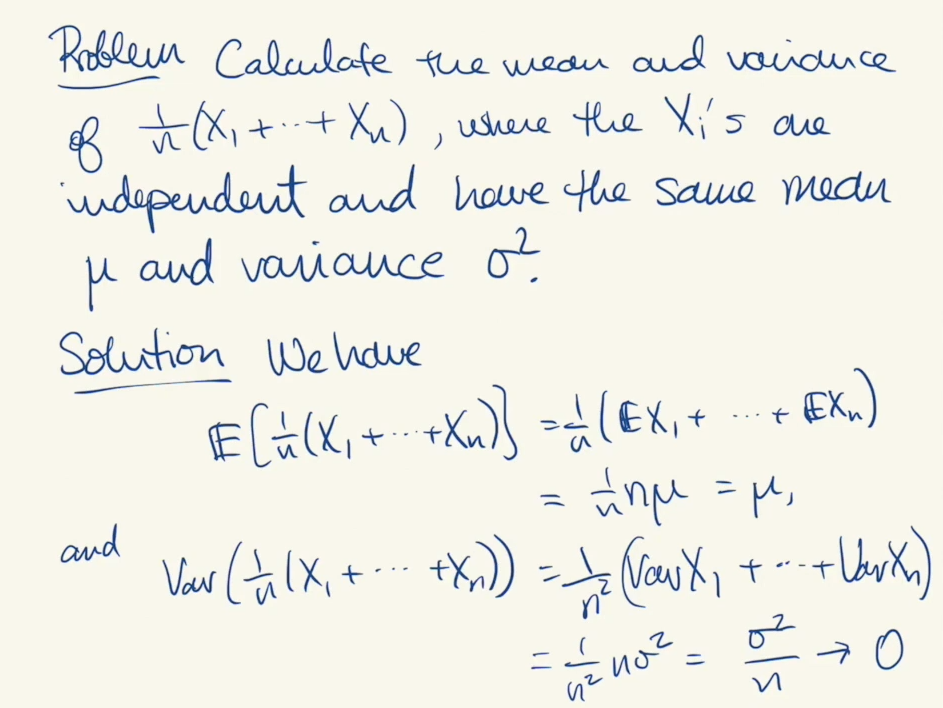 Problem Calculate the mean and variance
of 1/n (X₁ + ··· + Xₙ), where the Xᵢ's are
independent and have the same mean
μ and variance σ².
Solution We have
𝔼[1/n (X₁ + ··· + Xₙ)] = 1/n (𝔼X₁ + ··· + 𝔼Xₙ)
= 1/n nμ = μ,
and
Var(1/n (X₁ + ··· + Xₙ)) = 1/n² (Var X₁ + ··· + Var Xₙ)
= 1/n² nσ² = σ²/n → 0